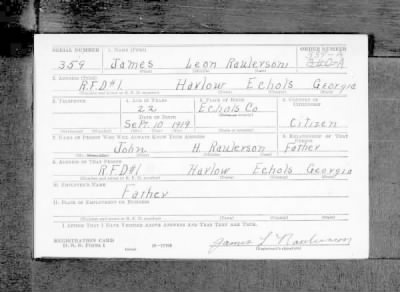 SERIAL NUMBER 1. NAME (Print) ORDER NUMBER
359 James Leon Rawlerson
(First) (Middle) (Last)
2. ADDRESS (Print)
R.F.D#1. Harlow Echols Georgia
3. TELEPHONE 4. AGE IN YEARS 5. PLACE OF BIRTH 6. COUNTRY OF CITIZENSHIP
22 Echols Co
DATE OF BIRTH
Sept 10 1919 Citizen
7. NAME OF PERSON WHO WILL ALWAYS KNOW YOUR ADDRESS 8. RELATIONSHIP OF THAT PERSON
John H. Rawlerson Father
9. ADDRESS OF THAT PERSON
R.F.D#1 Harlow Echols Georgia
10. EMPLOYER'S NAME
Father
11. PLACE OF EMPLOYMENT OR BUSINESS
I AFFIRM THAT I HAVE VERIFIED ABOVE ANSWERS AND THAT THEY ARE TRUE.
REGISTRATION CARD
D. S. S. Form 1 James L Rawlerson
(Registrant's signature)